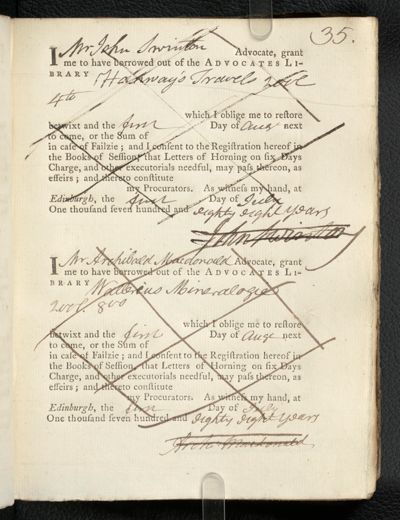 35.
I Mr John Swinton Advocate, grant
me to have borrowed out of the ADVOCATES LI-
BRARY Hanway's Travels 2 vol
4to
which I oblige me to restore
betwixt and the first Day of Augt next
to come, or the Sum of
in case of Failzie; and I consent to the Registration hereof in
the Books of Session, that Letters of Horning on six Days
Charge, and other executorials needful, may pass thereon, as
effeirs; and thereto constitute
my Procurators. As witness my hand, at
Edinburgh, the first Day of July
One thousand seven hundred and eighty eight years
John Swinton
I Mr Archibald Macdonald Advocate, grant
me to have borrowed out of the ADVOCATES LI-
BRARY Wallerius Mineralogie
2 vol. 8vo
which I oblige me to restore
betwixt and the first Day of Augt next
to come, or the Sum of
in case of Failzie; and I consent to the Registration hereof in
the Books of Session, that Letters of Horning on six Days
Charge, and other executorials needful, may pass thereon, as
effeirs; and thereto constitute
my Procurators. As witness my hand, at
Edinburgh, the first Day of July
One thousand seven hundred and eighty eight years
Archd Macdonald